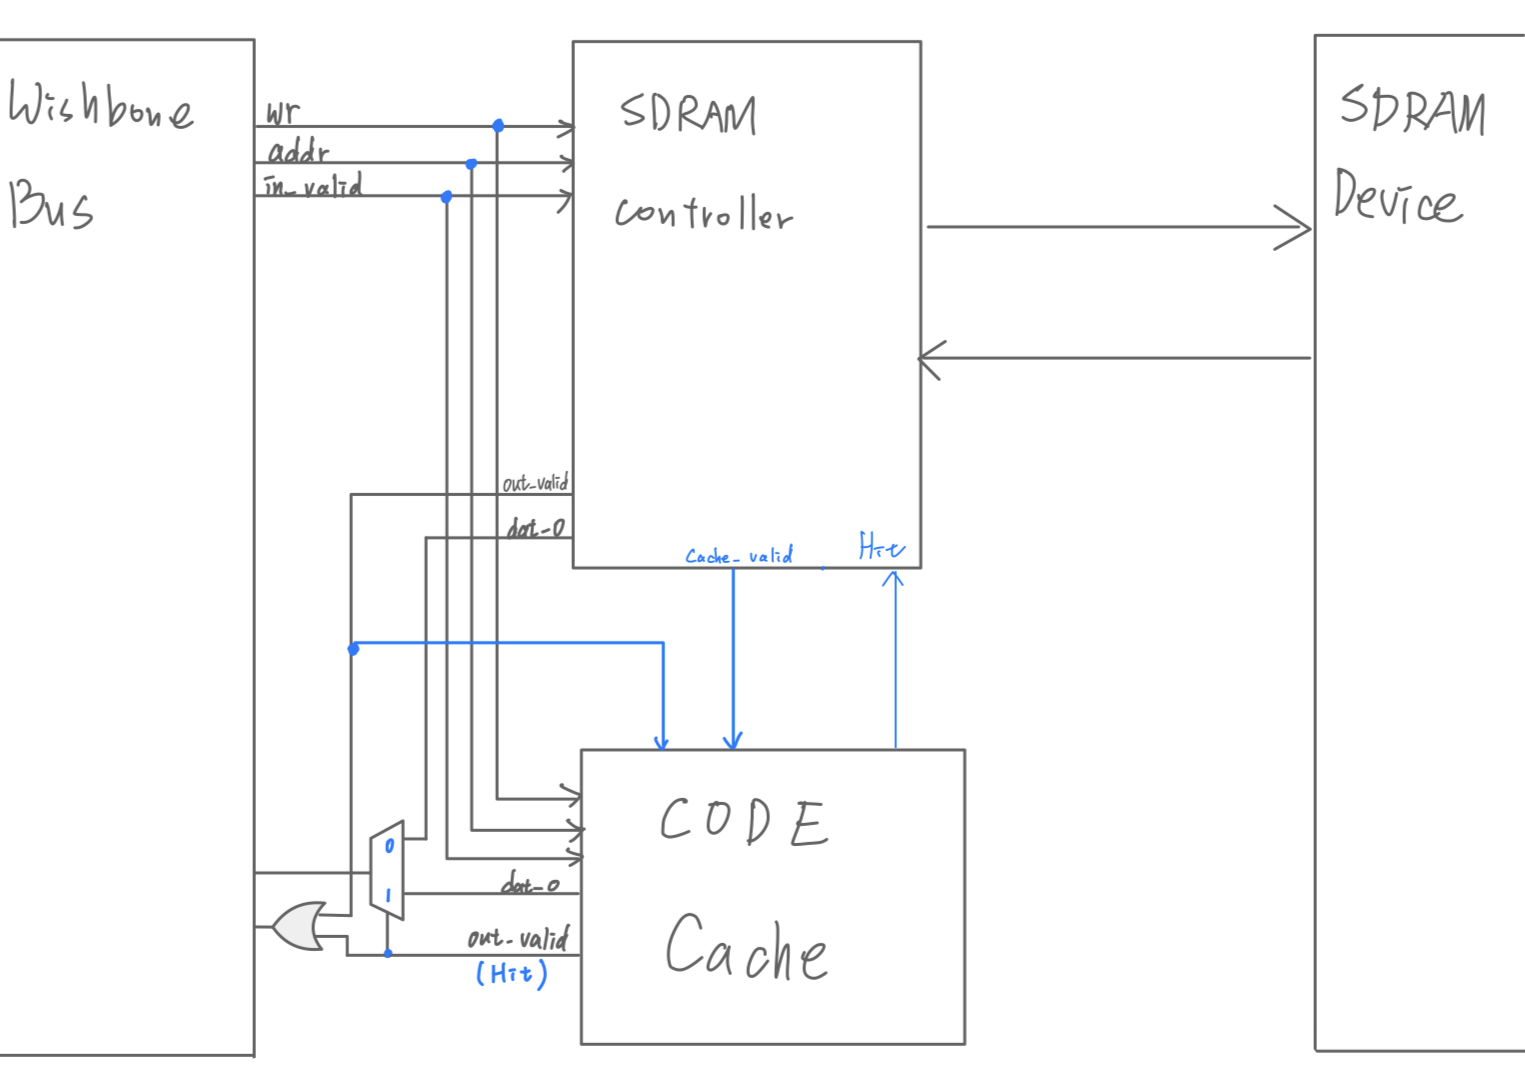 Wishbone
Bus
wr
addr
in_valid
SDRAM
controller
SDRAM
Device
out_valid
dat_o
Cache_valid
Hit
CODE
Cache
0
1
dat_o
out_valid
(Hit)